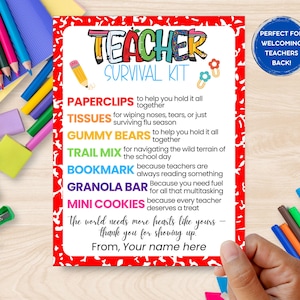 TEACHER
SURVIVAL KIT
PERFECT FOR
WELCOMING
TEACHERS
BACK!
PAPERCLIPS to help you hold it all
together
TISSUES for wiping noses, tears, or just
surviving flu season
GUMMY BEARS to help you hold it all
together
TRAIL MIX for navigating the wild terrain of
the school day
BOOKMARK because teachers are
always reading something
GRANOLA BAR Because you need fuel
for all that multitasking
MINI COOKIES because every teacher
deserves a treat
The world needs more hearts like yours –
thank you for showing up.
From, Your name here